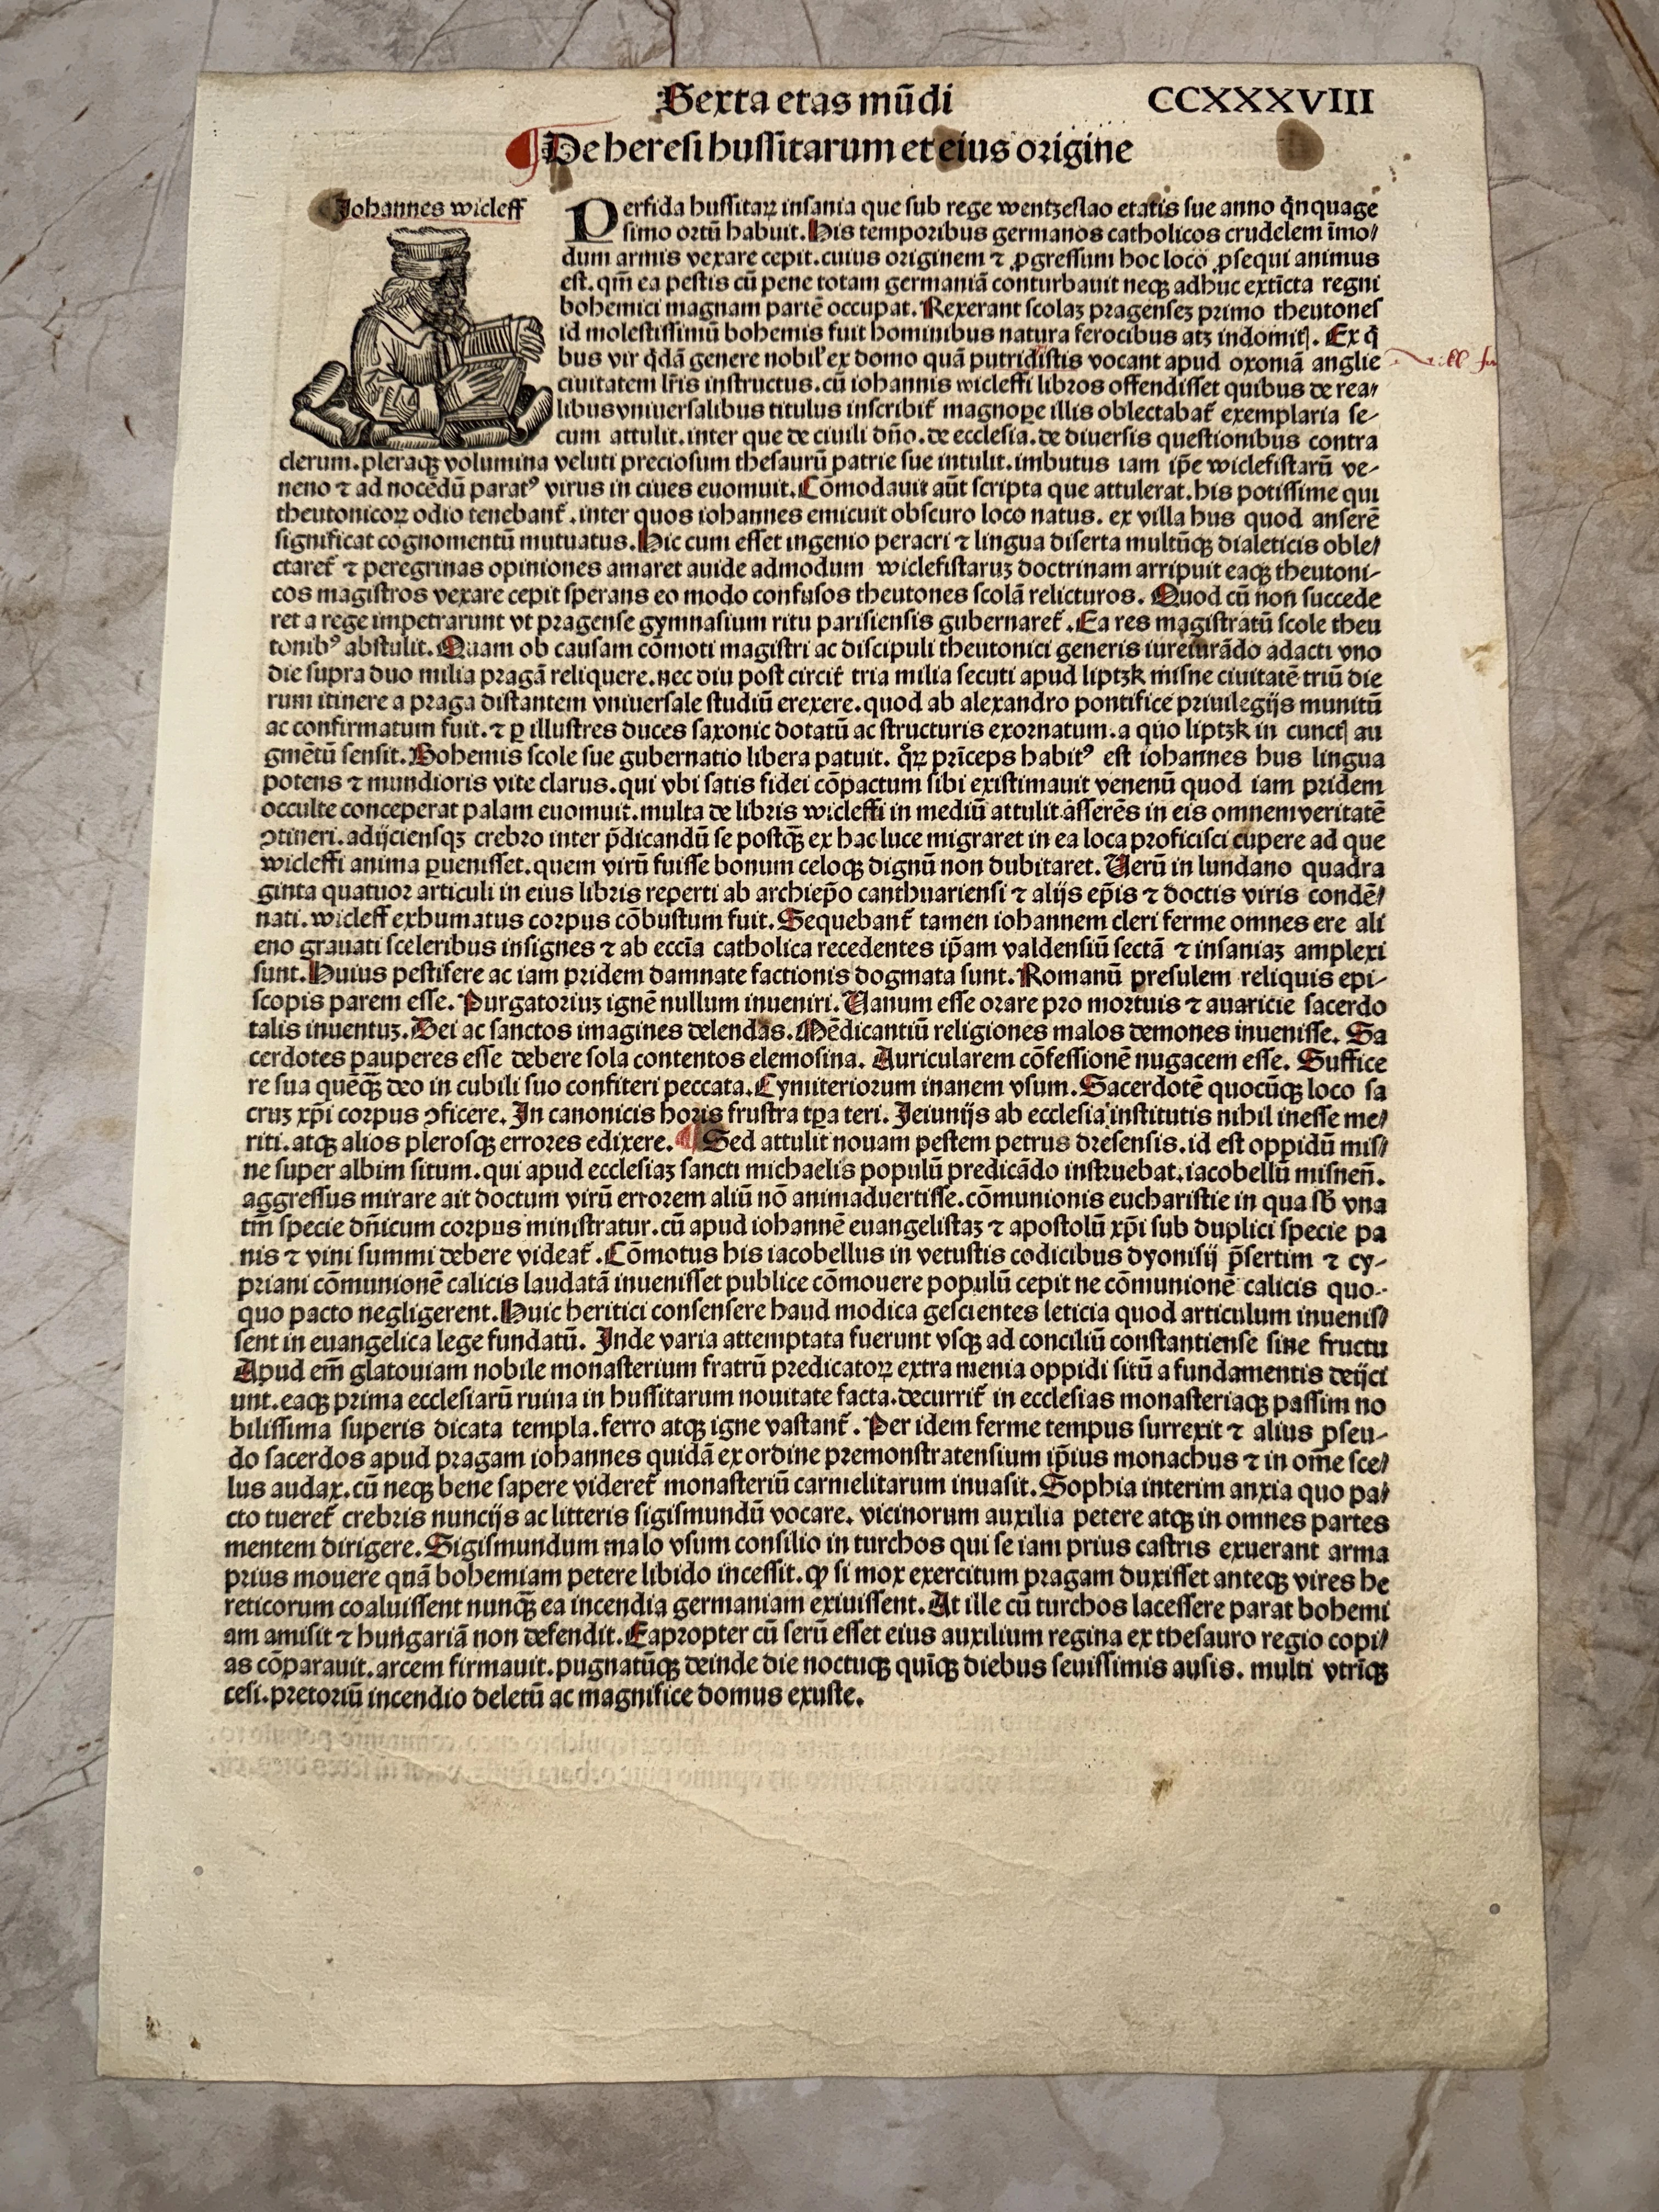 Sexta etas mūdi CCXXXVIII
De heresi hussitarum et eius origine
Johannes wicleff
Perfida hussitaꝝ insania que sub rege wentzeslao etatis sue anno q̇nquage
simo ortū habuit. His temporibus germanos catholicos crudelem īmo/
dum armis vexare cepit. cuius originem ⁊ ꝓgressum hoc loco ꝓsequi animus
est. qm̄ ea pestis cū pene totam germaniā conturbauit neqꝫ adhuc extīcta regni
bohemici magnam partē occupat. Rexerant scolaꝫ pragenseꝫ primo theutones
id molestissimū bohemis fuit hominibus natura ferocibus atꝫ indomitꝭ. Ex q̇
bus vir q̇dā genere nobil' ex domo quā putridistis vocant apud oxoniā anglie
ciuitatem lr̄is instructus. cū iohannis wicleffi libros offendisset quibus de rea/
libus vniuersalibus titulus inscribit᷑ magnoꝑe illis oblectabat᷑ exemplaria se-
cum attulit. inter que de ciuili dn̄o. de ecclesia. de diuersis questionibus contra
clerum. pleraqꝫ volumina veluti preciosum thesaurū patrie sue intulit. imbutus iam ip̄e wiclefistarū ve-
neno ⁊ ad nocēdū paratꝰ virus in ciues euomuit. Cōmodauit aūt scripta que attulerat. his potissime qui
theutonicoꝝ odio tenebant᷑. inter quos iohannes emicuit obscuro loco natus. ex villa hus quod anserē
significat cognomentū mutuatus. Hic cum esset ingenio peracri ⁊ lingua diserta multūqꝫ dialeticis oble/
ctaret᷑ ⁊ peregrinas opiniones amaret auide admodum wiclefistaruꝫ doctrinam arripuit eaqꝫ theutoni-
cos magistros vexare cepit sperans eo modo confusos theutones scolā relicturos. Quod cū non succede
ret a rege impetrarunt vt pragense gymnasium ritu parisiensis gubernaret᷑. Ea res magistratū scole theu
tonibꝰ abstulit. Quam ob causam cōmoti magistri ac discipuli theutonici generis iureiurādo adacti vno
die supra duo milia pragā reliquere. nec diu post circit᷑ tria milia secuti apud liptzk misne ciuitatē triū die
rum itinere a praga distantem vniuersale studiū erexere. quod ab alexandro pontifice priuilegijs munitū
ac confirmatum fuit. ⁊ ꝑ illustres duces saxonic dotatū ac structuris exornatum. a quo liptzk in cunctꝭ au
gmētū sensit. Bohemis scole sue gubernatio libera patuit. qͦꝝ prīceps habitꝰ est iohannes hus lingua
potens ⁊ mundioris vite clarus. qui vbi satis fidei cōpactum sibi existimauit venenū quod iam pridem
occulte conceperat palam euomuit. multa de libris wicleffi in mediū attulit asserēs in eis omnem veritatē
ꝯtineri. adijciensqꝫ crebro inter p̄dicandū se postqꝫ̄ ex hac luce migraret in ea loca proficisci cupere ad que
wicleffi anima ꝑuenisset. quem virū fuisse bonum celoqꝫ dignū non dubitaret. Verū in lundano quadra
ginta quatuor articuli in eius libris reperti ab archiep̄o canthuariensi ⁊ alijs ep̄is ⁊ doctis viris condē/
nati. wicleff exhumatus corpus cōbustum fuit. Sequebant᷑ tamen iohannem cleri ferme omnes ere ali
eno grauati sceleribus insignes ⁊ ab eccīa catholica recedentes ip̄am valdensiū sectā ⁊ insaniaꝫ amplexi
sunt. Huius pestifere ac iam pridem damnate factionis dogmata sunt. Romanū presulem reliquis epi-
scopis parem esse. Purgatoriuꝫ ignē nullum inueniri. Vanum esse orare pro mortuis ⁊ auaricie sacerdo
talis inuentuꝫ. Dei ac sanctos imagines delendas. Mēdicantiū religiones malos demones inuenisse. Sa
cerdotes pauperes esse debere sola contentos elemosina. Auricularem cōfessionē nugacem esse. Suffice
re sua quēqꝫ̄ deo in cubili suo confiteri peccata. Cymiteriorum inanem vsum. Sacerdotē quocūqꝫ loco sa
cruꝫ xp̄i corpus ꝯficere. In canonicis horis frustra tꝑa teri. Jeiunijs ab ecclesia institutis nihil inesse me/
riti. atqꝫ alios plerosqꝫ errores edixere. ¶ Sed attulit nouam pestem petrus dresensis. id est oppidū mis/
ne super albim situm. qui apud ecclesiaꝫ sancti michaelis populū predicādo instruebat. iacobellū misnen̄.
aggressus mirare ait doctum virū errorem aliū nō animaduertisse. cōmunionis eucharistie in qua sb̄ vna
tm̄ specie dn̄icum corpus ministratur. cū apud iohannē euangelistaꝫ ⁊ apostolū xp̄i sub duplici specie pa
nis ⁊ vini summi debere videat᷑. Cōmotus his iacobellus in vetustis codicibus dyonisij p̄sertim ⁊ cy-
priani cōmunionē calicis laudatā inuenisset publice cōmouere populū cepit ne cōmunionē calicis quo-
quo pacto negligerent. Huic heritici consensere haud modica gescientes leticia quod articulum inuenis/
sent in euangelica lege fundatū. Inde varia attemptata fuerunt vsqꝫ ad conciliū constantiense sine fructu
Apud em̄ glatouiam nobile monasterium fratrū predicatoꝝ extra menia oppidi sitū a fundamentis deijci
unt. eaqꝫ prima ecclesiarū ruina in hussitarum nouitate facta. decurrit᷑ in ecclesias monasteriaqꝫ passim no
bilissima superis dicata templa. ferro atqꝫ igne vastant᷑. Per idem ferme tempus surrexit ⁊ alius pseu-
do sacerdos apud pragam iohannes quidā ex ordine premonstratensium ip̄ius monachus ⁊ in om̄e sce/
lus audax. cū neqꝫ bene sapere videret᷑ monasteriū carmelitarum inuasit. Sophia interim anxia quo pa/
cto tueret᷑ crebris nuncijs ac litteris sigismundū vocare. vicinorum auxilia petere atqꝫ in omnes partes
mentem dirigere. Sigismundum malo vsum consilio in turchos qui se iam prius castris exuerant arma
prius mouere quā bohemiam petere libido incessit. ꝙ si mox exercitum pragam duxisset anteqꝫ vires he
reticorum coaluissent nunqꝫ̄ ea incendia germaniam exiuissent. At ille cū turchos lacessere parat bohemi
am amisit ⁊ hungariā non defendit. Eapropter cū serū esset eius auxilium regina ex thesauro regio copi/
as cōparauit. arcem firmauit. pugnatūqꝫ deinde die noctuqꝫ quīqꝫ diebus seuissimis ausis. multi vtrīqꝫ
cesi. pretoriū incendio deletū ac magnifice domus exuste.